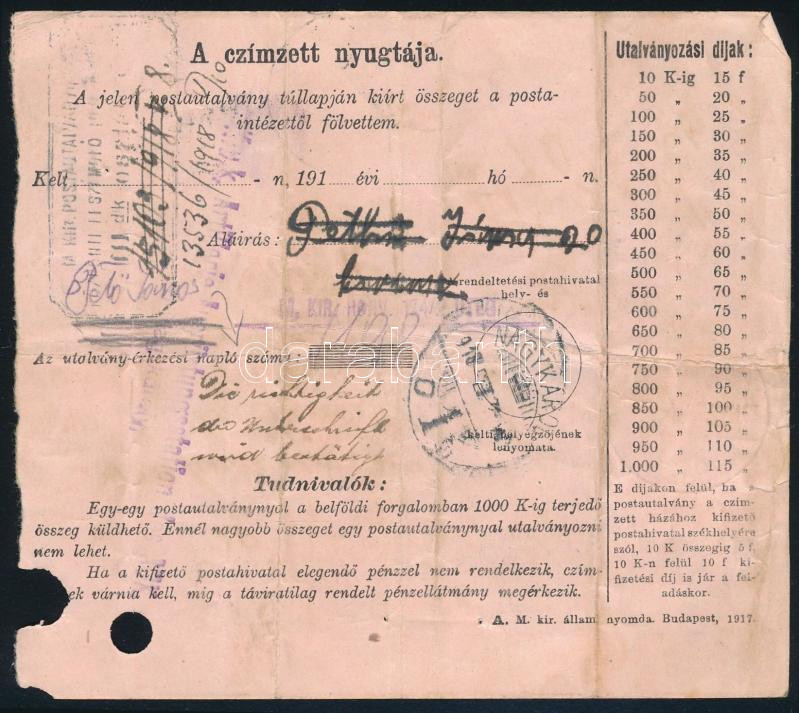 A czímzett nyugtája.
A jelen postautalvány túllapján kiírt összeget a posta-
intézettől fölvettem.
Kelt - n, 191 évi hó - n.
13536/1918
Aláírás:
rendeltetési postahivatal
hely- és
NAGYKÁRO
Az utalvány-érkezési napló száma:
Die richtigkeit
der Unterschrift
wird bestätigt
kelti helyegzőjének
lenyomata.
Tudnivalók:
Egy-egy postautalványnyal a belföldi forgalomban 1000 K-ig terjedő
összeg küldhető. Ennél nagyobb összeget egy postautalványnyal utalványozni
nem lehet.
Ha a kifizető postahivatal elegendő pénzzel nem rendelkezik, czím-
ek várnia kell, míg a táviratilag rendelt pénzellátmány megérkezik.
A. M. kir. állam nyomda. Budapest, 1917.
Utalványozási díjak:
10 K-ig 15 f
50 „ 20 „
100 „ 25 „
150 „ 30 „
200 „ 35 „
250 „ 40 „
300 „ 45 „
350 „ 50 „
400 „ 55 „
450 „ 60 „
500 „ 65 „
550 „ 70 „
600 „ 75 „
650 „ 80 „
700 „ 85 „
750 „ 90 „
800 „ 95 „
850 „ 100 „
900 „ 105 „
950 „ 110 „
1.000 „ 115 „
E díjakon felül, ha a
postautalvány a czím-
zett házához kifizető
postahivatal székhelyére
szól, 10 K összegig 5 f,
10 K-n felül 10 f ki-
fizetési díj is jár a fel-
adáskor.
darabanth.com